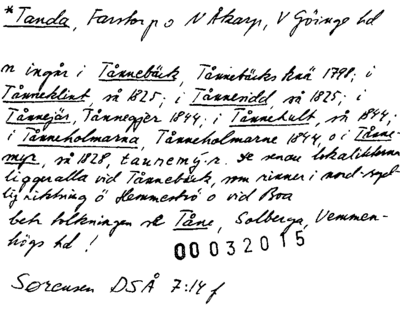 *Tanda, Farstorps o N Åkarp, V Göinge hd
n ingår i Tånnebäck, Tånnebäcks Knä 1798; i
Tånneklint, så 1825; i Tånneridd, så 1825; i
Tånnejär, Tånnegjer 1844; i Tånnehult, så 1844;
i Tånneholmarna, Tånneholmarne 1844, o i Tånne-
myr, så 1828, tannemy·r. De senare lokaliteterna
ligger alla vid Tånnebäck, som rinner i nord-syd-
lig riktning ö Hemmeströ o vid Boa
betr tolkningen se Tåne, Solberga, Vemmen-
högs hd !
00032015
Sørensen DSÅ 7:14 f